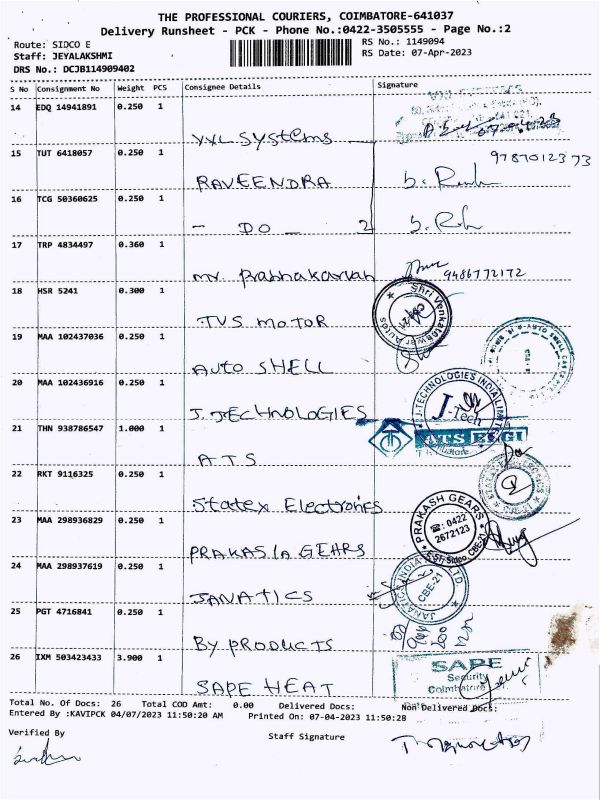 THE PROFESSIONAL COURIERS, COIMBATORE-641037
Delivery Runsheet - PCK - Phone No.:0422-3505555 - Page No.:2
Route: SIDCO E
RS No.: 1149094
Staff: JEYALAKSHMI
RS Date: 07-Apr-2023
DRS No.: DCJB114909402
S No Consignment No Weight PCS Consignee Details Signature
14 EDQ 14941891 0.250 1
VXL SYSTEMS
15 TUT 6418057 0.250 1
9787012373
RAVEENDRA
16 TCG 50360625 0.250 1
- DO - 2
17 TRP 4834497 0.360 1
Mr. Prabhakaran
9486772172
18 HSR 5241 0.300 1
Shri Venkateswar Autos
TVS MOTOR
19 MAA 102437036 0.250 1
AUTO SHELL
20 MAA 102436916 0.250 1
J-TECHNOLOGIES INDIA LIMITED
J-Tech
J. TECHNOLOGIES
21 THN 938786547 1.000 1
ATS
A.T.S
22 RKT 9116325 0.250 1
Statex Electronics
23 MAA 298936829 0.250 1
PRAKASH GEARS
☎: 0422
2672123
PRAKASIA GEARS
24 MAA 298937619 0.250 1
CBE-21
JANATICS
25 PGT 4716841 0.250 1
BY PRODUCTS
26 IXM 503423433 3.900 1
SAPE
Security
Coimbatore
SAPE HEAT
Total No. Of Docs: 26 Total COD Amt: 0.00 Delivered Docs: Non Delivered Docs:
Entered By :KAVIPCK 04/07/2023 11:50:20 AM Printed On: 07-04-2023 11:50:28
Verified By
Staff Signature